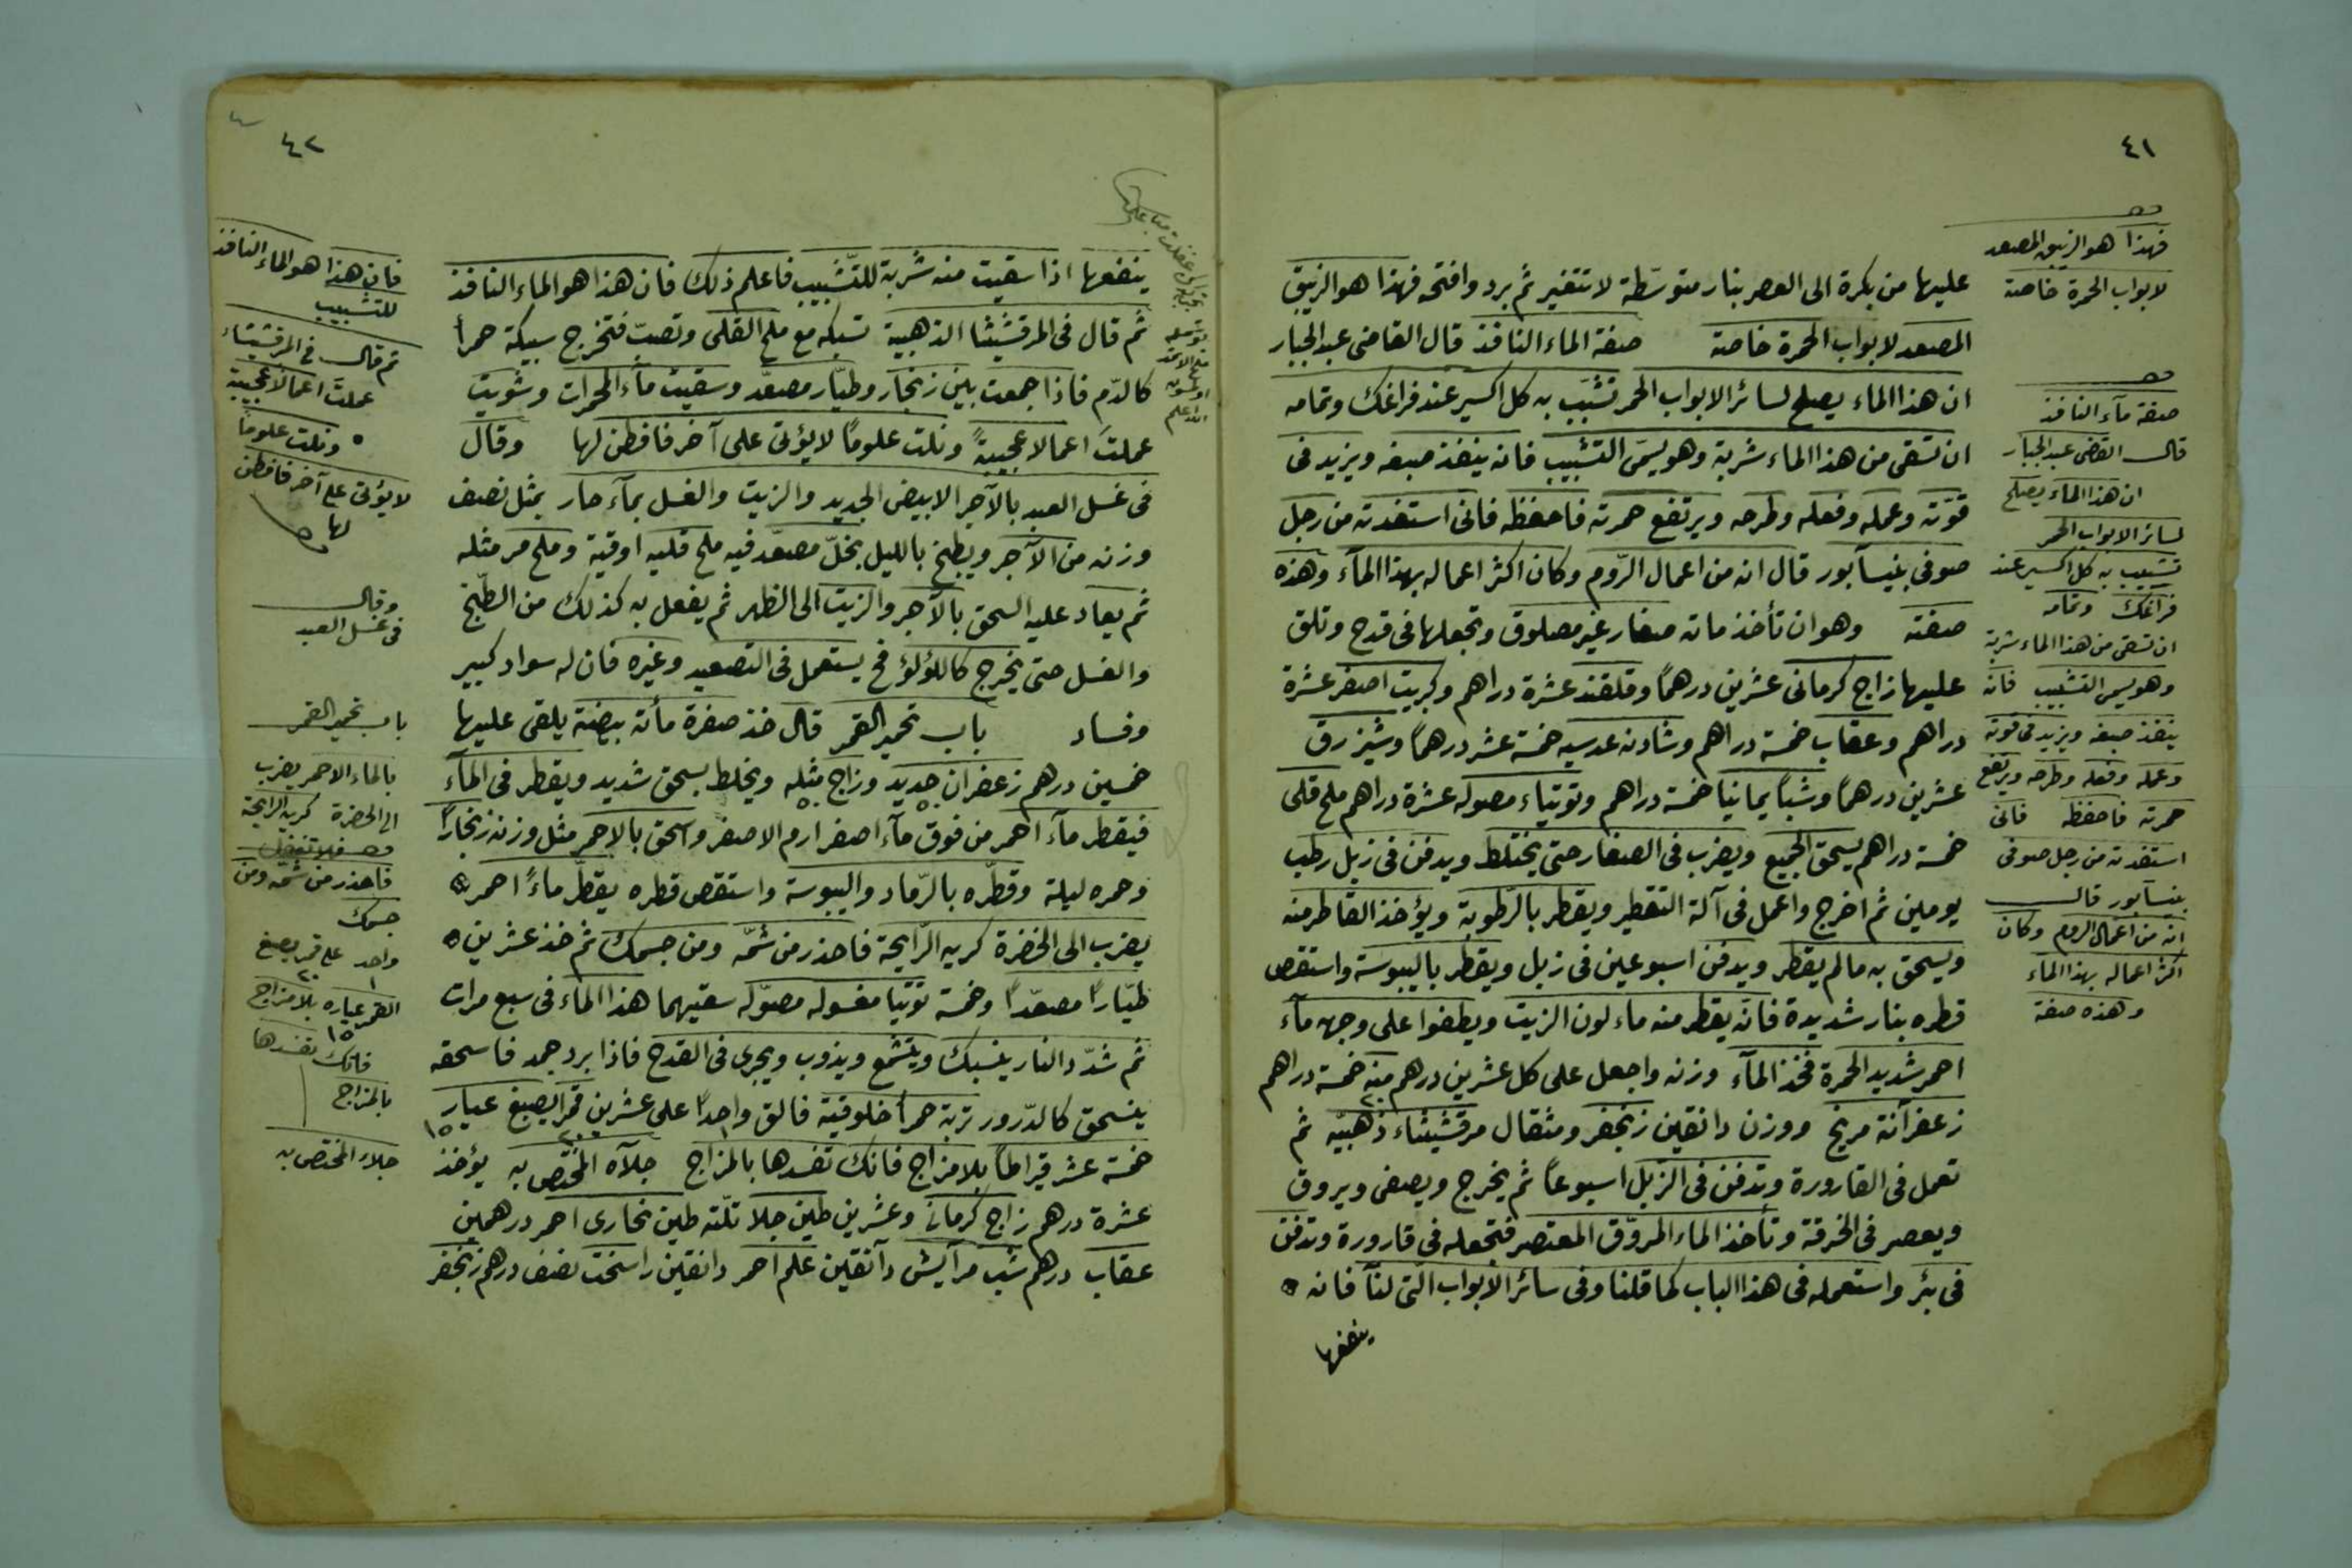 ٤١
عليها من بكرة الى العصر بنار متوسّطة لا تتغير ثم برد وافتحه فهذا هو الزيبق
المصعد لابواب الحمرة خاصة صفة الماء النافذ قال القاضى عبد الجبار
ان هذا الماء يصلح لسائر الابواب الحمر تشبّب به كل اكسير عند فراغك وتمامه
ان تسقى من هذا الماء شربة وهو يسمى التشبيب فانه ينفذ صبغه ويزيد فى
قوّته وعمله وفعله وطرحه ويرتفع حمرته فاحفظه فانى استفدته من رجل
صوفى بنيسآبور قال انه من اعمال الرّوم وكان اكثر اعماله بهذا المآء وهذه
صفته وهو ان تأخذ ماته صفار غير مصلوق وتجعلها فى قدح وتلق
عليها زاج كرمانى عشرين درهمًا وقلقند عشرة دراهم وكبريت اصفر عشرة
دراهم وعقاب خمسة دراهم وشادنه عدسيه خمسة عشر درهمًا وشيزرق
عشرين درهمًا وشبًا يمانيا خمسة دراهم وتوتياء مصوله عشرة دراهم ملح قلى
خمسة دراهم يسحق الجميع ويضرب فى الصفار حتى يختلط ويدفن فى زبل رطب
يومين ثم اخرج واعمل فى آلة التقطير ويقطر بالرطوبة ويؤخذ القاطر منه
ويسحق به مالم يقطر ويدفن اسبوعين فى زبل ويقطر باليبوسة واستقص
قطره بنار شديدة فانّه يقطر منه ماء لون الزيت ويطفوا على وجهه مآء
احمر شديد الحمرة فخذ المآء وزنه واجعل على كل عشرين درهم منه خمسة دراهم
٢٠
زعفرآنة مريخ ووزن دانقين زنجفر ومثقال مرقشيثاء ذهبيّه ثم
تعمل فى القارورة وتدفن فى الزبل اسبوعًا ثم يخرج ويصفى ويروق
ويعصر فى الخرقة وتأخذ الماء المروّق المعتصر فتجعله فى قارورة وتدفن
فى بئر واستعمله فى هذا الباب كما قلنا وفى سائر الابواب الّتى لنا فانه
ينفعها
فهذا هو الزيبق المصعد
لابواب الحمرة خاصة
صفة مآء النافذ
قال القضى عبد الجبار
ان هذا الماء يصلح
لسائر الابواب الحمر
تشبب به كل اكسير عند
فراغك وتمامه
ان تسقى من هذا الماء شربة
وهو يسمى التشبيب فانه
ينفذ صبغه ويزيد فى قوته
وعمله وفعله وطرحه ويرتفع
حمرته فاحفظه فانى
استفدته من رجل صوفى
بنيسآبور قال
انه من اعمال الروم وكان
اكثر اعماله بهذا الماء
وهذه صفة
٤٢
ينفعها اذا سقيت منه شربة للتّشبيب فاعلم ذلك فان هذا هو الماء النافذ
ثم قال فى المرقشيثا الذهبية تسبكه مع ملح القلى وتصبّ فتخرج سبيكة حمرأ
كالدّم فاذا جمعت بين زنجار وطيّار مصعّد وسقيت مآء الحمرات وشويت
عملتَ اعمالا عجيبةً ونلت علومًا لا يؤتى على آخر فافطن لها وقال
فى غسل العبد بالآجر الابيض الجديد والزيت والغسل بمآء حار بمثل نصف
وزنه من الآجر ويطبخ بالليل بخلّ مصعّد فيه ملح قليه اوقية وملح مر مثله
ثم يعاد عليه السحق بالآجر والزيت الى الظهر ثم يفعل به كذلك من الطّبخ
والغسل حتى يخرج كاللؤلؤ فح يستعمل فى التصعيد وغيره فان له سواد كبير
وفساد باب تحمير القمر قال خذ صفرة مأة بيضة يلقى عليها
خمسين درهم زعفران جديد وزاج مثله ويخلط بسحق شديد ويقطر فى المآء
فيقطر مآء احمر من فوق مآء اصفر ارم الاصفر واسحق بالاحمر مثل وزنه زنجارًا
وحمره ليلة وقطّره بالرّماد واليبوسة واستقص قطره يقطّر ماءً احمر
يضرب الى الخضرة كريه الرّايحة فاحذر من شمّه ومن جسمك ثم خذ عشرين
طيّارًا مصعّدًا وخمسة توتيا مغسوله مصوّله سقيهما هذا الماء فى سبع مرات
ثم شدّد النار ينسبك ويتشمع ويذوب ويجرى فى القدح فاذا برد جمد فاسحقه
ينسحق كالدّرور تربة حمرأ خلوقية فالق واحدًا على عشرين قمر ايصبغ عيار
١٥
خمسة عشر قيراطًا بلا مزاج فانك تفسدها بالمزاج جلآه المختص به يؤخذ
عشرة درهم زاج كرمانى وعشرين طين جلا تلّته طين بخارى احمر درهمين
عقاب درهم شب مرآيش دآنقين علم احمر دانقين راسخت نصف درهم زنجفر
فان هذا هو الماء النافذ
للتشبيب
ثم قال فى المرقشيثاء
عملت اعمالا عجيبة
ونلت علومًا
لا يؤتى على آخر فافطن
لها
وقال
فى غسل العبد
باب تحمير القمر
بالماء الاحمر يضرب
الى الخضرة كريه الرايحة
فاحذر من شمّه ومن
جسمك
واحد على قمر يصبغ
٢٠
القمر عياره بلا مزاج
١٥
فانك تفسدها
بالمزاج
جلاء المختص به